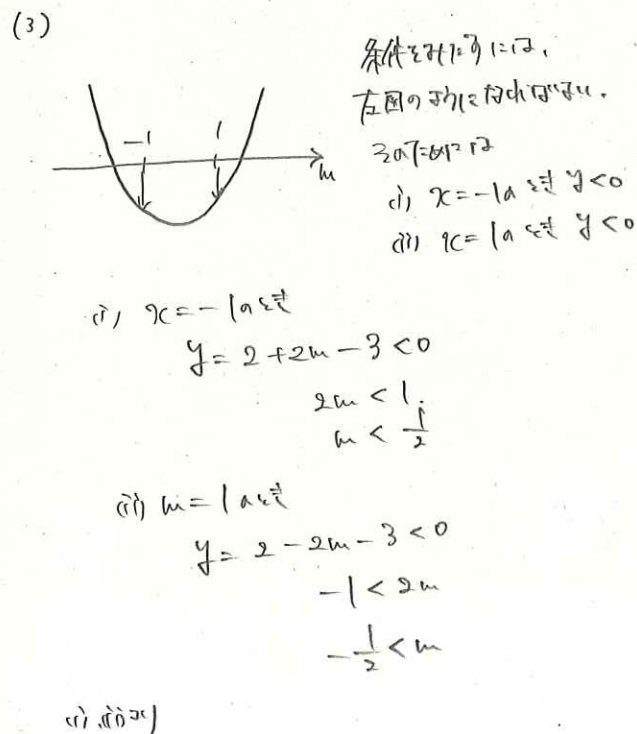 (3)
条件をみたすには、
左図のようになればよい。
そのためには
(i) x=-1のとき y<0
(ii) x=1のとき y<0
-1 1
m
(i) x=-1のとき
y=2+2m-3<0
2m<1.
m<\frac{1}{2}
(ii) m=1のとき
y=2-2m-3<0
-1<2m
-\frac{1}{2}<m
(i),(ii)より